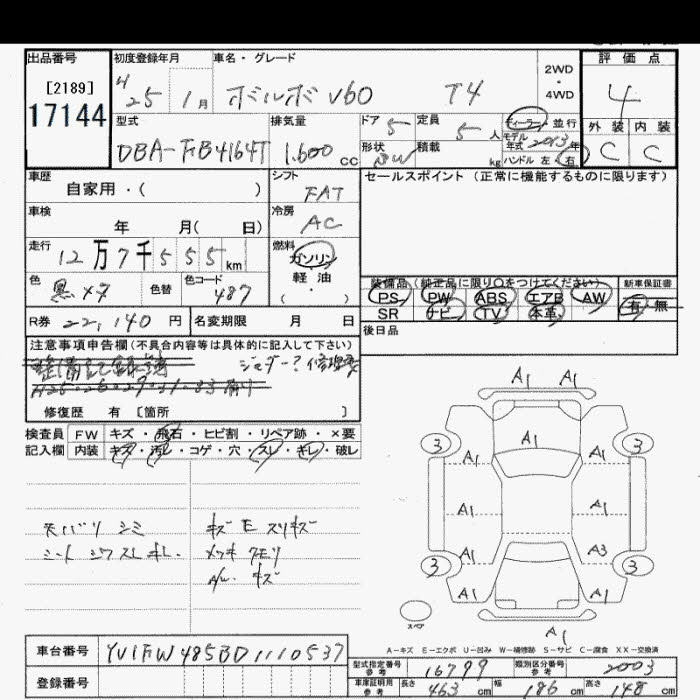 出品番号 初度登録年月 車名・グレード 2WD・4WD 評価点
[2189]
17144
H 25 1月 ボルボ V60 T4 4
型式 排気量 ドア 5 定員 5人 ディーラー・並行 外装 内装
DBA-FB4164T 1.600 cc 形状 SW 積載 kg モデル年式 2013年 ハンドル 左・右 C C
車歴 自家用・( ) シフト FAT セールスポイント (正常に機能するものに限ります)
車検 年 月( 日) 冷房 AC
走行 12万7千555km 燃料 ガソリン 軽・油 ・( )
色 黒メタ 色替 色コード 487 装備品 (純正品に限り○をつけてください) 新車保証書
PS PW ABS エアB AW 有・無
SR ナビ TV 本革
R券 22,140円 名変期限 月 日 後日品
注意事項申告欄(不具合内容等は具体的に記入して下さい)
整備記録簿
修復歴 有 [箇所 ]
検査員 FW キズ・飛石・ヒビ割・リペア跡・×要
記入欄 内装 キズ・汚レ・コゲ・穴・スレ・キレ・破レ
天バリ シミ キズ E スリキズ
シート シワ スレ キレ. メッキ クモリ
A/W キズ
A1 A1
A1
3 3
A1 A1
A1 A1
A1 A3
3 3
A1 A1
スペア
A1
A-キズ E-エクボ U-凹み W-補修跡 S-サビ C-腐食 XX-交換済
車台番号 YV1FW485BD1110537
登録番号
型式指定番号 参考 16799 類別区分番号 参考 2003
車庫証明用 参考 長さ 463cm 幅 186cm 高さ 148cm